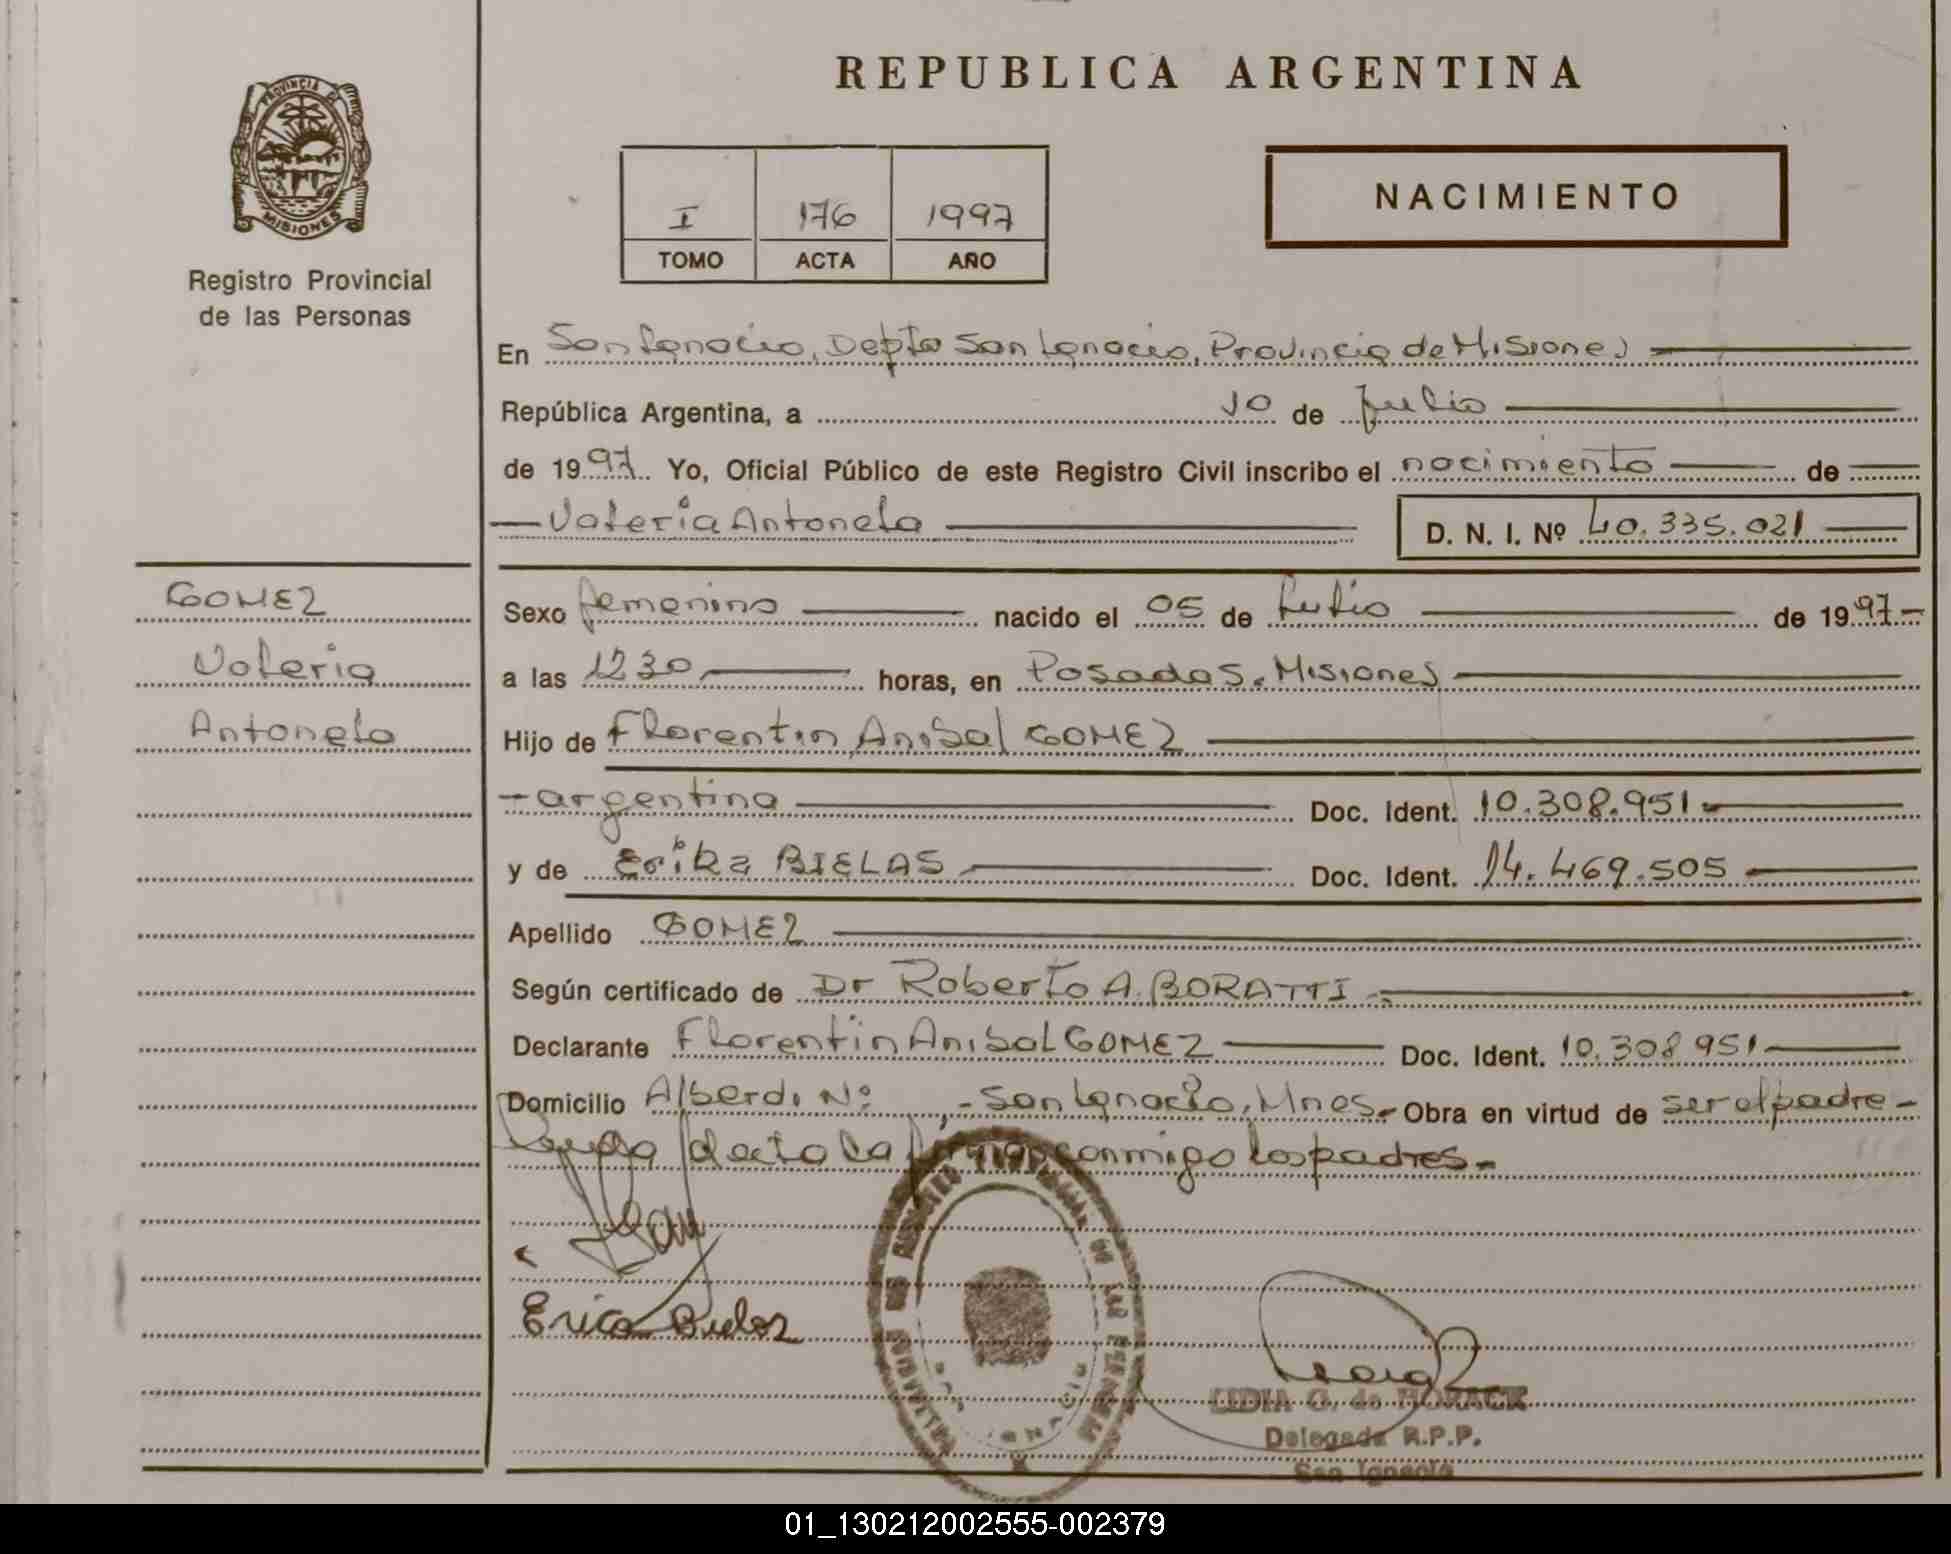 REPUBLICA ARGENTINA
PROVINCIA DE
MISIONES
Registro Provincial
de las Personas
I 176 1997
TOMO ACTA AÑO
NACIMIENTO
En San Ignacio, Depto San Ignacio, Provincia de Misiones
República Argentina, a 10 de Julio
de 1997 Yo, Oficial Público de este Registro Civil inscribo el nacimiento de
Valeria Antonela
D. N. I. Nº 40.335.021
GOMEZ
Valeria
Antonela
Sexo femenino nacido el 05 de Julio de 1997-
a las 1230 horas, en Posadas. Misiones
Hijo de Florentin Anibal GOMEZ
-argentina Doc. Ident. 10.308.951-
y de Erika BIELAS Doc. Ident. 14.469.505
Apellido GOMEZ
Según certificado de Dr Roberto A. BORATTI
Declarante Florentin Anibal GOMEZ Doc. Ident. 10.308 951
Domicilio Alberdi Nº , - San Ignacio, Mnes.- Obra en virtud de ser el padre-
acta la firman conmigo los padres.-
Erica Bielas
LIDIA G. de HORACK
Delegada R.P.P.
San Ignacio
01_130212002555-002379